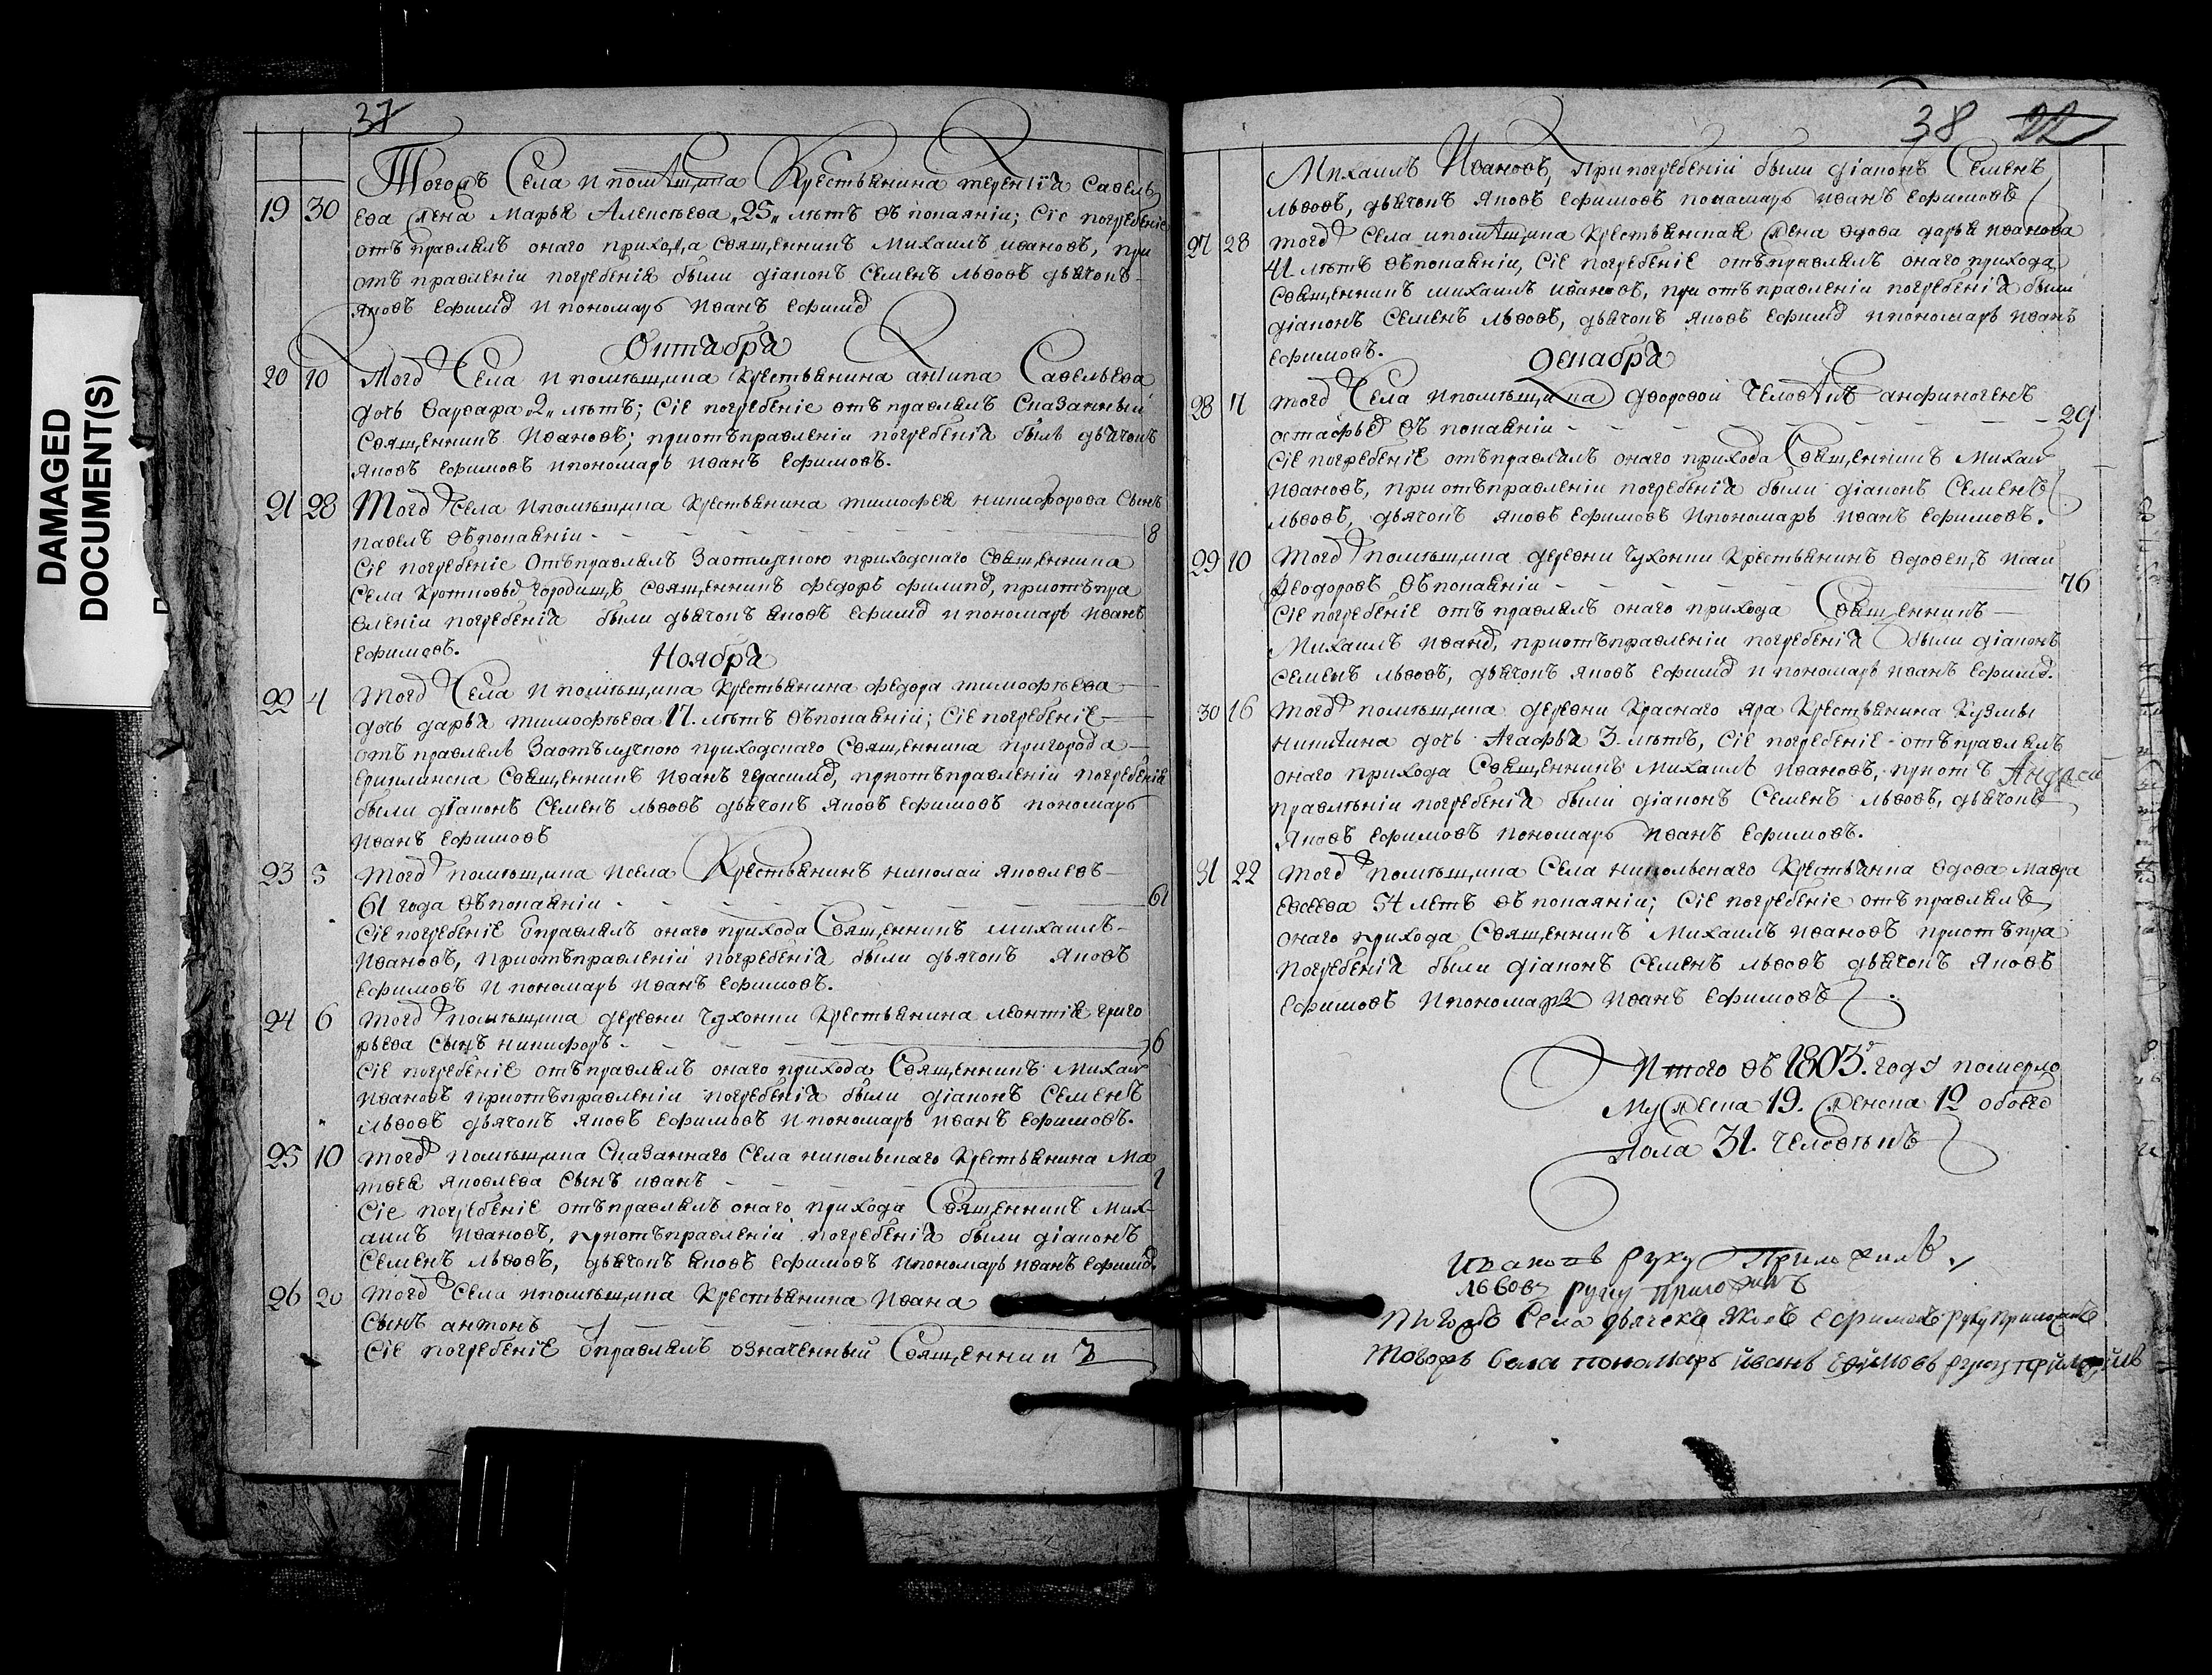 DAMAGED
DOCUMENT(S)
37
Тогожъ Села и помѣщика Крестьянина терентїа Савель
19 30 ева жена Марья Алексѣева „25„ лѣтъ въ покаяніи; Сіе погребеніе
отъправлялъ онаго прихода Священникъ Михаилъ ивановъ, при
отъправленіи погребенія были діаконъ Семенъ львовъ дьячокъ
яковъ Ефимов и пономарь иванъ Ефимов
Октабря
20 10 Тогож Села и помѣщика Крестьянина антипа Савельева
дочь Варвара „2„ лѣтъ; Сіе погребеніе отъправлялъ Сказанный
Священникъ Ивановъ; приотъправленіи погребенія былъ дьячокъ
яковъ Ефимовъ и пономарь иванъ Ефимовъ.
21 28 Тогож Села и помѣщика Крестьянина тимофея никифорова Сынъ
павелъ въ покаяніи 8
Сіе погребеніе Отъправлялъ Заотлучкою приходскаго Священника
Села Кротковъ Городищъ Священникъ Федоръ филипов, приотъпра
вленіи погребенія были дьячокъ яковъ Ефимов и пономарь иванъ
Ефимовъ.
Ноября
22 4 тогож Села и помѣщика Крестьянина федора тимофѣева
дочь дарья тимофѣева 17. лѣтъ въ покаяніи; Сіе погребеніе
отъправлялъ Заотълучкою приходскаго Священника пригорода
Ериклинска Священникъ Иванъ герасимов, приотъправленіи погребенія
были діаконъ Семенъ львовъ дьячокъ яковъ Ефимовъ пономарь
иванъ Ефимовъ
23 5 тогож помѣщика и села Крестьянинъ николай яковлевъ
61 года въ покаяніи 61
Сіе погребеніе Оправлялъ онаго прихода Священникъ михаилъ
Ивановъ, приотъправленіи погребенія были дьячокъ яковъ
Ефимовъ и пономарь иванъ Ефимовъ.
24 6 тогож помѣщика деревни Чухонки Крестьянина леонтія григо
рьева сынъ никифоръ 6
Сіе погребеніе отъправлялъ онаго прихода Священникъ Михаи
Ивановъ приотъправленіи погребенія были діаконъ Семенъ
львовъ дьячокъ яковъ Ефимовъ и пономарь иванъ Ефимовъ.
25 10 тогож помѣщика Сказаннаго Села никольскаго Крестьянина Ма
твея яковлева Сынъ иванъ 1
Сіе погребеніе отъправлялъ онаго прихода Священникъ Мих
аилъ Ивановъ, приотъправленіи погребенія были діаконъ
Семенъ львовъ, дьячокъ яковъ Ефимовъ и пономарь иванъ Ефимов.
26 20 тогож Села и помѣщика Крестьянина Ивана
Сынъ антонъ
Сіе погребеніе Оправлялъ означенный Священникъ
38 22
Михаилъ Ивановъ, При погребеніи были діаконъ Семенъ
львовъ, дьячокъ яковъ Ефимовъ понамарь иванъ Ефимовъ
27 28 тогож Села и помѣщика Крестьянская жена вдова дарья иванова
41 лѣтъ въ покаяніи, Сіе погребеніе отъправлялъ онаго прихода
Священникъ михаилъ ивановъ, при отъправленіи погребенія были
діаконъ Семенъ львовъ, дьячокъ яковъ Ефимов и пономарь иванъ
Ефимовъ.
декабря
28 7 тогож Села и помѣщика дворовой Человѣкъ анфиногенъ
остафьев въ покаяніи 29
Сіе погребеніе отъправлялъ онаго прихода Священникъ Михаи
Ивановъ, приотъправленіи погребенія были діаконъ Семенъ
львовъ, дьячокъ яковъ Ефимовъ и пономарь иванъ Ефимовъ.
29 10 тогож помѣщика деревни Чухонки Крестьянинъ вдовецъ исаи
Феодоровъ въ покаяніи 76
Сіе погребеніе отъправлялъ онаго прихода Священникъ
Михаилъ Иванов, приотъправленіи погребенія были діаконъ
Семенъ львовъ, дьячокъ яковъ Ефимов и пономарь иванъ Ефимов.
30 16 тогож помѣщика деревни Краснаго яра Крестьянина Кузмы
никитина дочь Агафья 3. лѣтъ, Сіе погребеніе отъправлялъ
онаго прихода Священникъ Михаилъ Ивановъ, приотъ Андрей
правлѣніи погребенія были діаконъ Семенъ львовъ, дьячокъ
яковъ Ефимовъ пономарь иванъ Ефимовъ.
31 22 тогож помѣщика Села никольскаго Крестьянка вдова Мавра
Евсеева 54 летъ въ покаяніи; Сіе погребеніе отъправлялъ
онаго прихода Священникъ Михаилъ ивановъ приотъпра
погребенія были діаконъ Семенъ львовъ дьячокъ яковъ
Ефимовъ и пономарь иванъ Ефимовъ.
Итого въ 1803. году померло
Мужеска 19. женска 12 обоево
Пола 31. Человѣкъ
Ивановъ руку Приложилъ
львовъ руку приложилъ
тогожъ Села дьячекъ Яковъ Ефимовъ руку приложилъ
тогожъ Села пономарь Иванъ Ефимовъ руку приложилъ